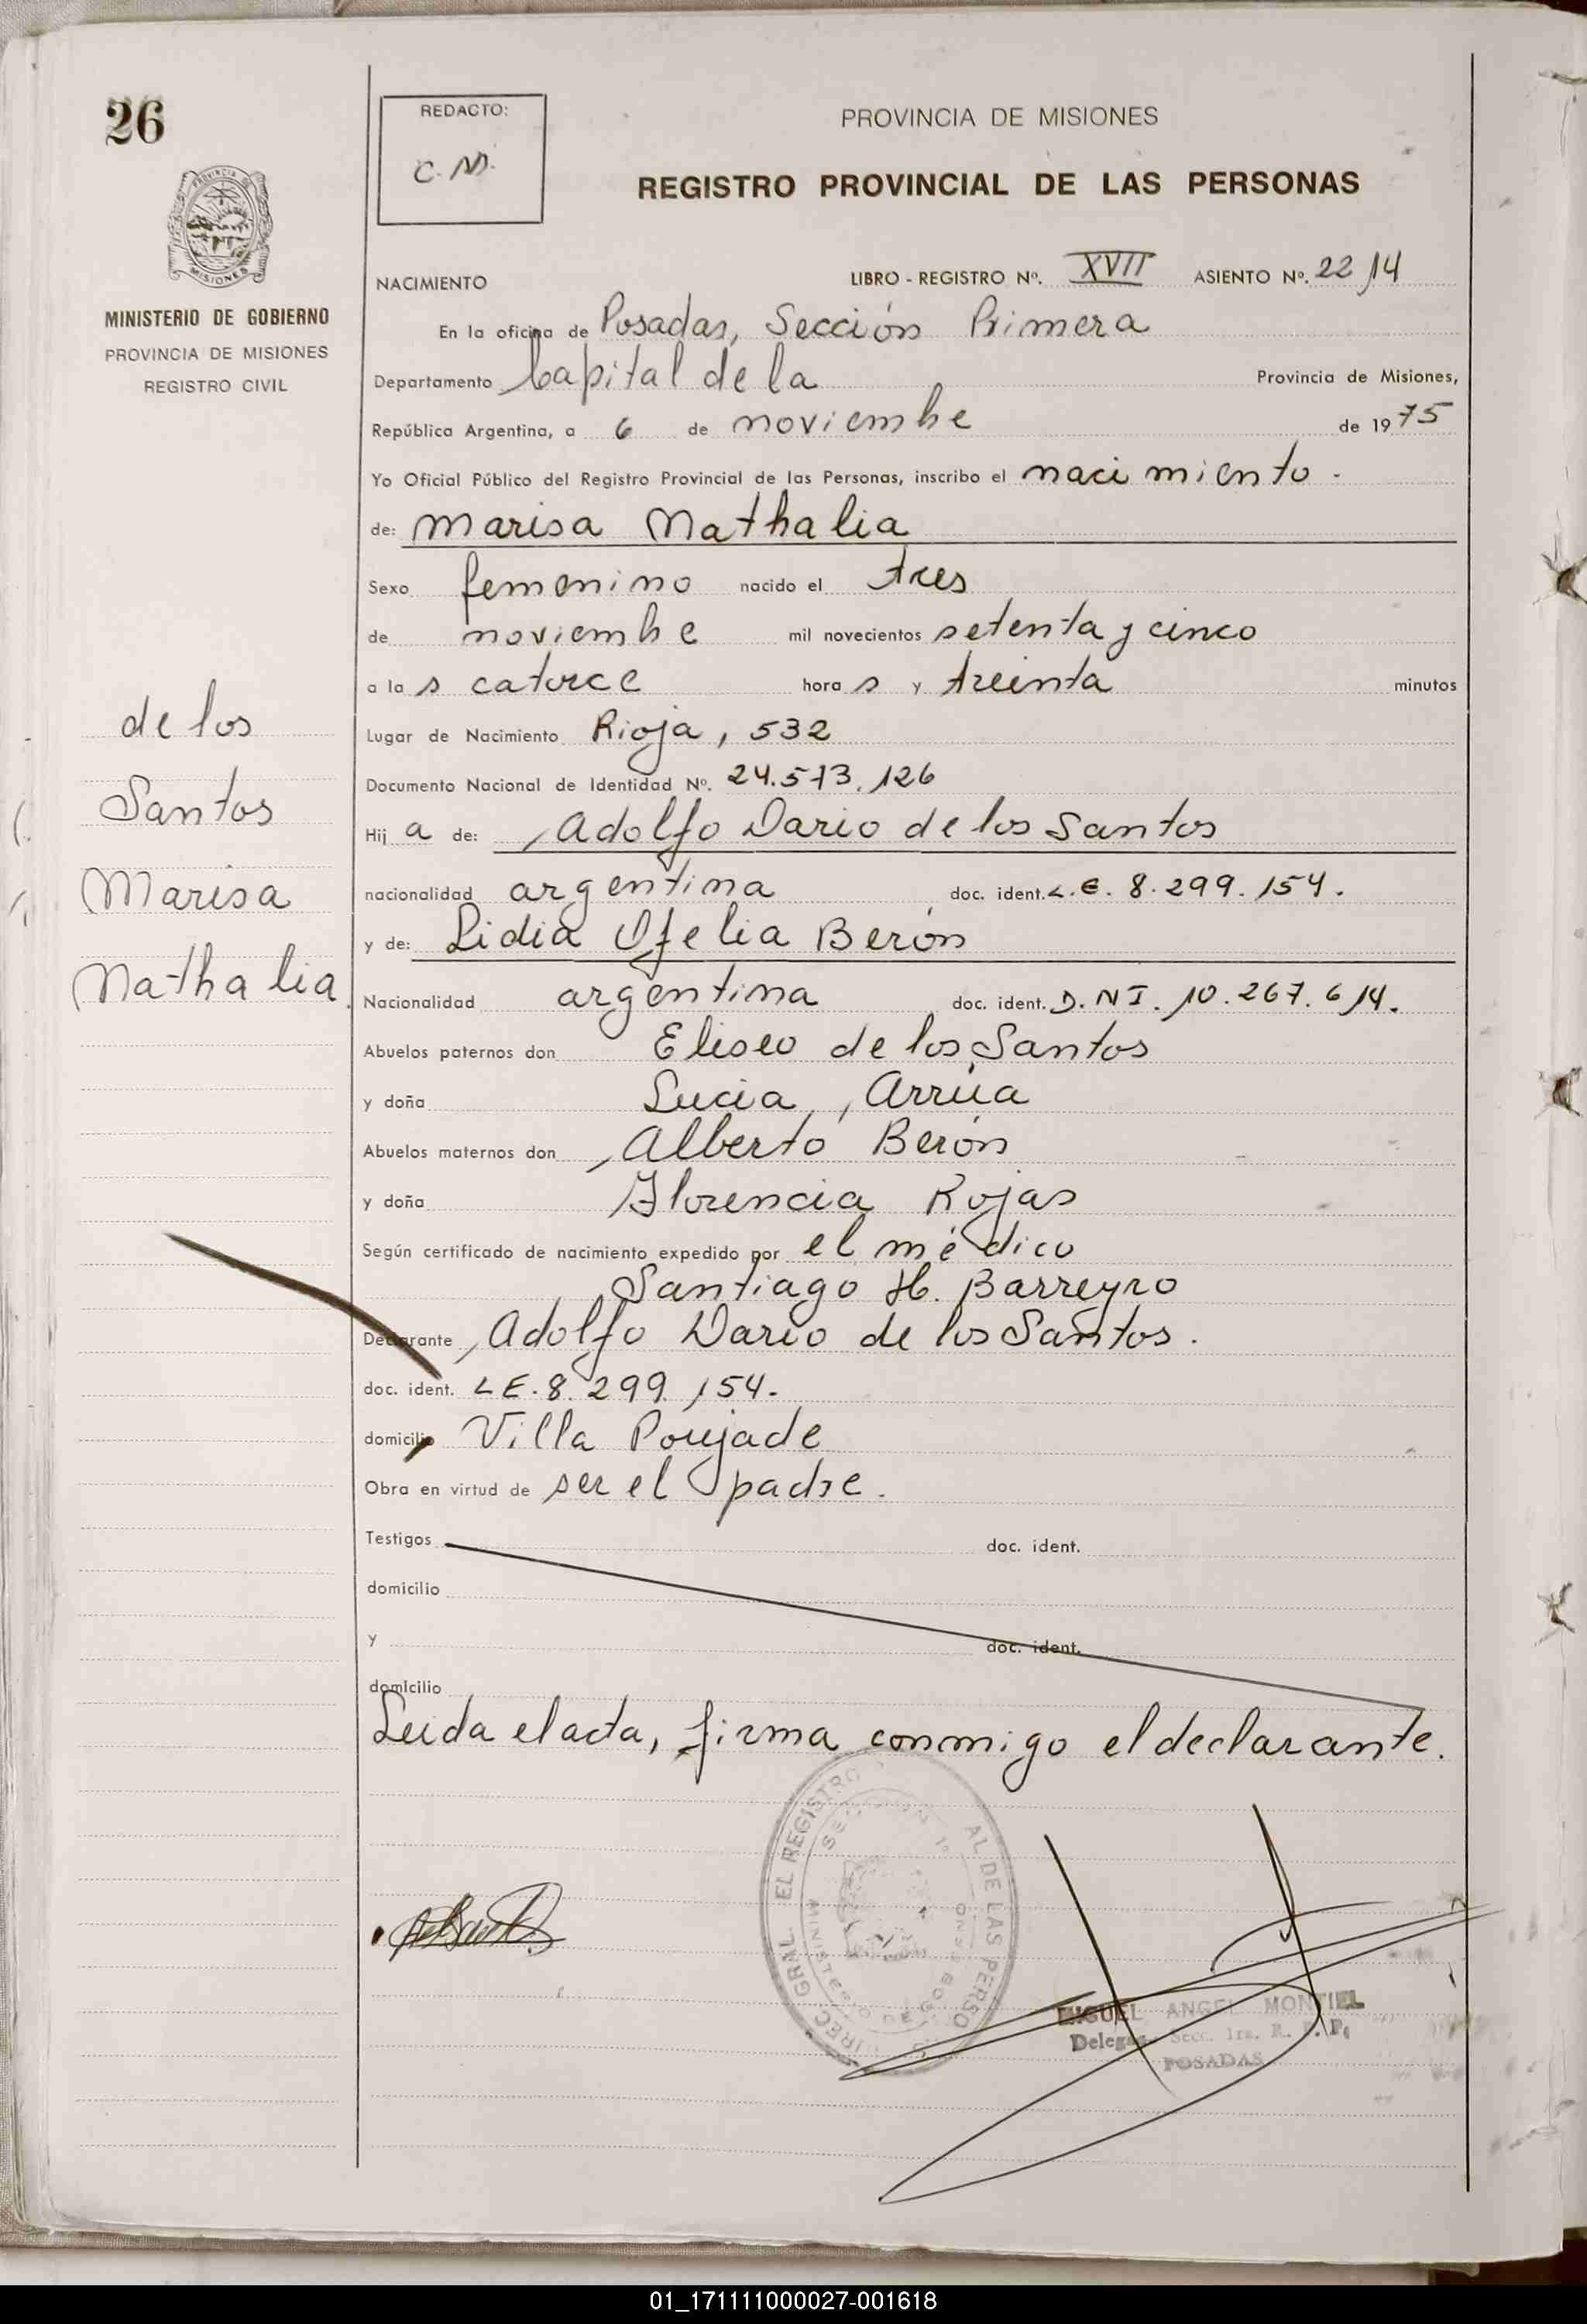 26
REDACTO:
C. M.
PROVINCIA DE MISIONES
REGISTRO PROVINCIAL DE LAS PERSONAS
PROVINCIA DE
MISIONES
MINISTERIO DE GOBIERNO
PROVINCIA DE MISIONES
REGISTRO CIVIL
NACIMIENTO LIBRO - REGISTRO Nº. XVII ASIENTO Nº. 2214
En la oficina de Posadas, Sección Primera
Departamento Capital de la Provincia de Misiones,
República Argentina, a 6 de noviembre de 1975
Yo Oficial Público del Registro Provincial de las Personas, inscribo el nacimiento -
de: Marisa Nathalia
Sexo femenino nacido el tres
de noviembre mil novecientos setenta y cinco
a la s catorce hora s y treinta minutos
Lugar de Nacimiento Rioja, 532
Documento Nacional de Identidad Nº. 24.573.126
Hij a de: Adolfo Dario de los Santos
nacionalidad argentina doc. ident. L.E. 8.299.154.
y de: Lidia Ofelia Berón
Nacionalidad argentina doc. ident. D.NI. 10.267.614.
Abuelos paternos don Eliseo de los Santos
y doña Lucia Arrúa
Abuelos maternos don Alberto Berón
y doña Florencia Rojas
Según certificado de nacimiento expedido por el médico
Santiago H. Barreyro
Declarante Adolfo Dario de los Santos.
doc. ident. LE. 8.299.154.
domicilio Villa Poujade
Obra en virtud de ser el padre.
Testigos doc. ident.
domicilio
y doc. ident.
domicilio
Leida el acta, firma conmigo el declarante.
de los
Santos
Marisa
Nathalia
MIGUEL ANGEL MONTIEL
Secc. 1ra. R. P. P.
POSADAS
01_171111000027-001618